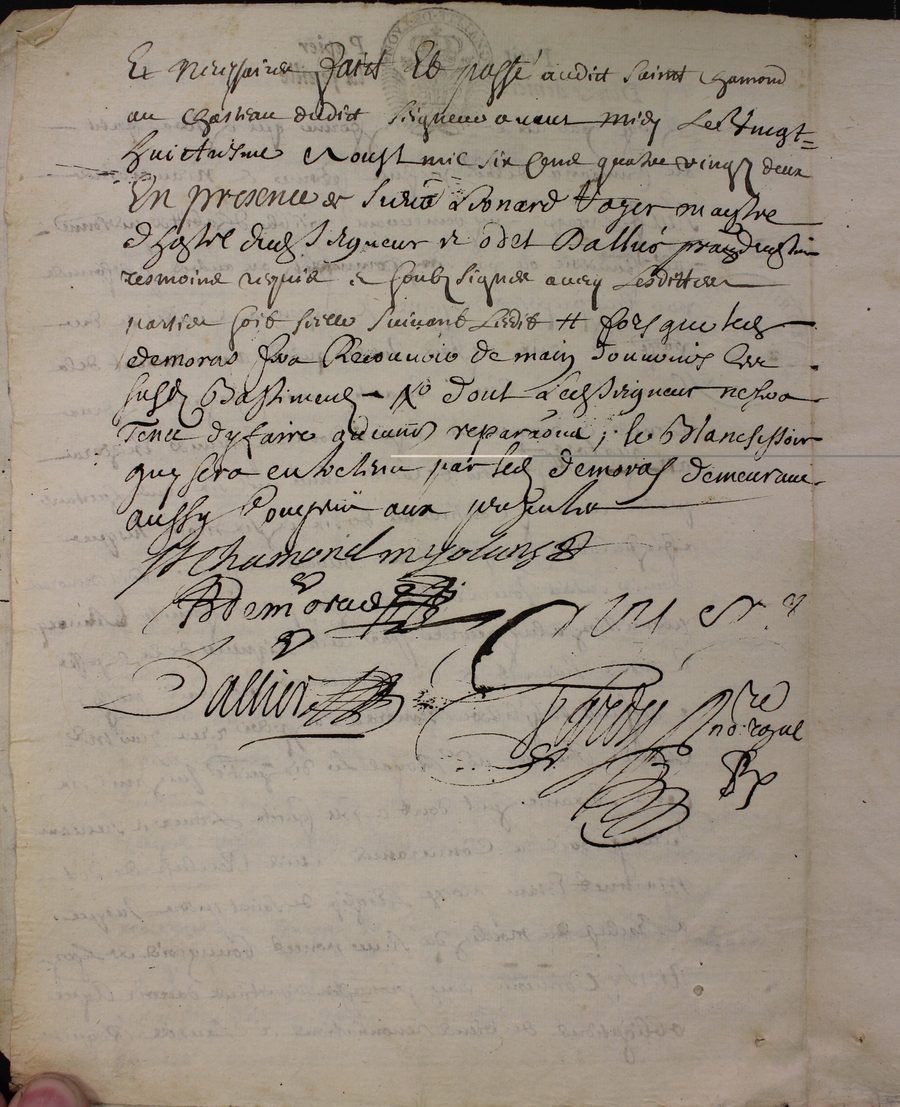 Et necessaires faict Et passé audict Sainct Chamond
au Chasteau dudict Seigneur avant midy Le Vingt=
huictiesme Aoust mil six Cens quatre vingtz deux
En presence de Sieurs Leonard Voger maistre
d'hostel dud Seigneur et odet Dallier
tesmoins requis et soubz signes avecq Lesdittes
parties soit scelle suivant Ledit # fors que led
demoras fera Recouvrir de main d'ouvriers Les
susd Bastimens dont Led Seigneur ne sera
Tenu d'y faire aucune reparaōn ; le Blanchissoir
quy sera entretenu par led demoras demeurant
aussy Compris aux presentes
St Chamond
Demoras
Dallier
nore royal